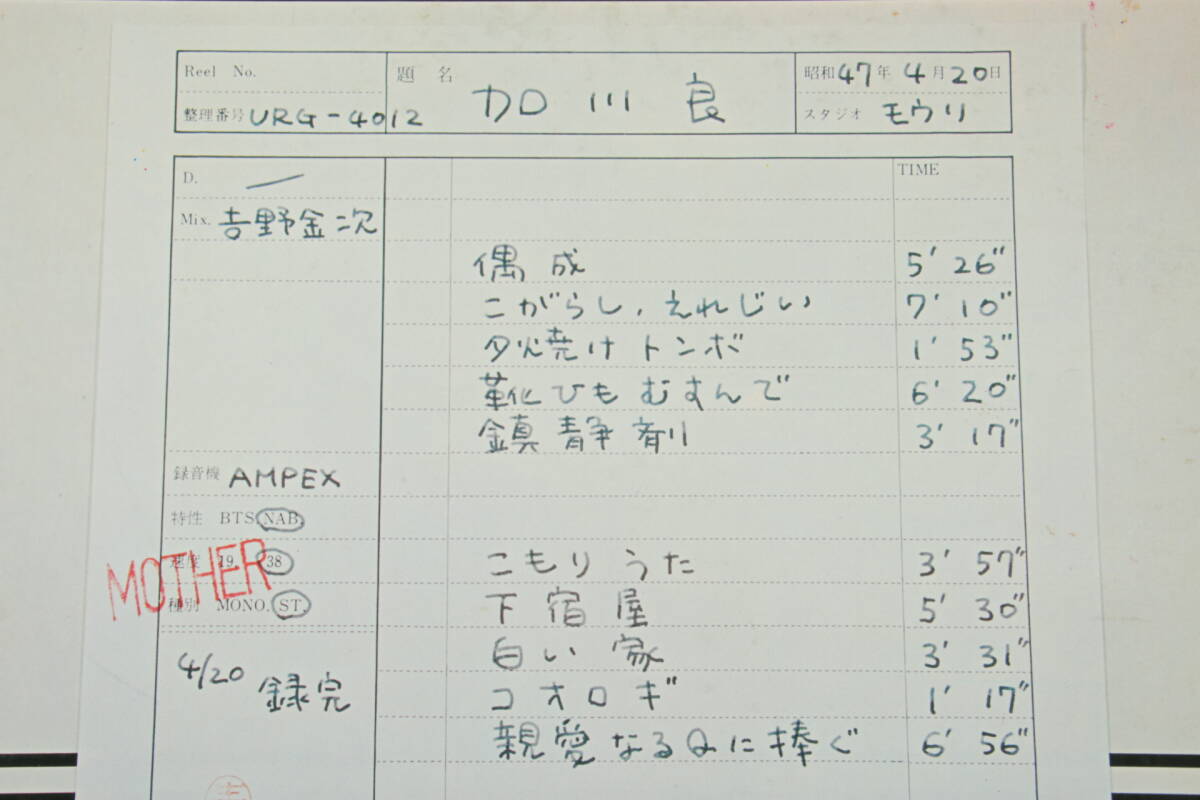 Reel No.
整理番号 URG-4012
題名 加川良
昭和47年4月20日
スタジオ モウリ
D. —
TIME
Mix. 吉野金次
偶成 5' 26"
こがらし、えれじい 7' 10"
夕焼けトンボ 1' 53"
靴ひもむすんで 6' 20"
鎮静剤 3' 17"
録音機 AMPEX
特性 BTS. NAB.
速度 19. 38
MOTHER
種別 MONO. ST.
こもりうた 3' 57"
下宿屋 5' 30"
白い家 3' 31"
コオロギ 1' 17"
親愛なるQに捧ぐ 6' 56"
4/20 録完